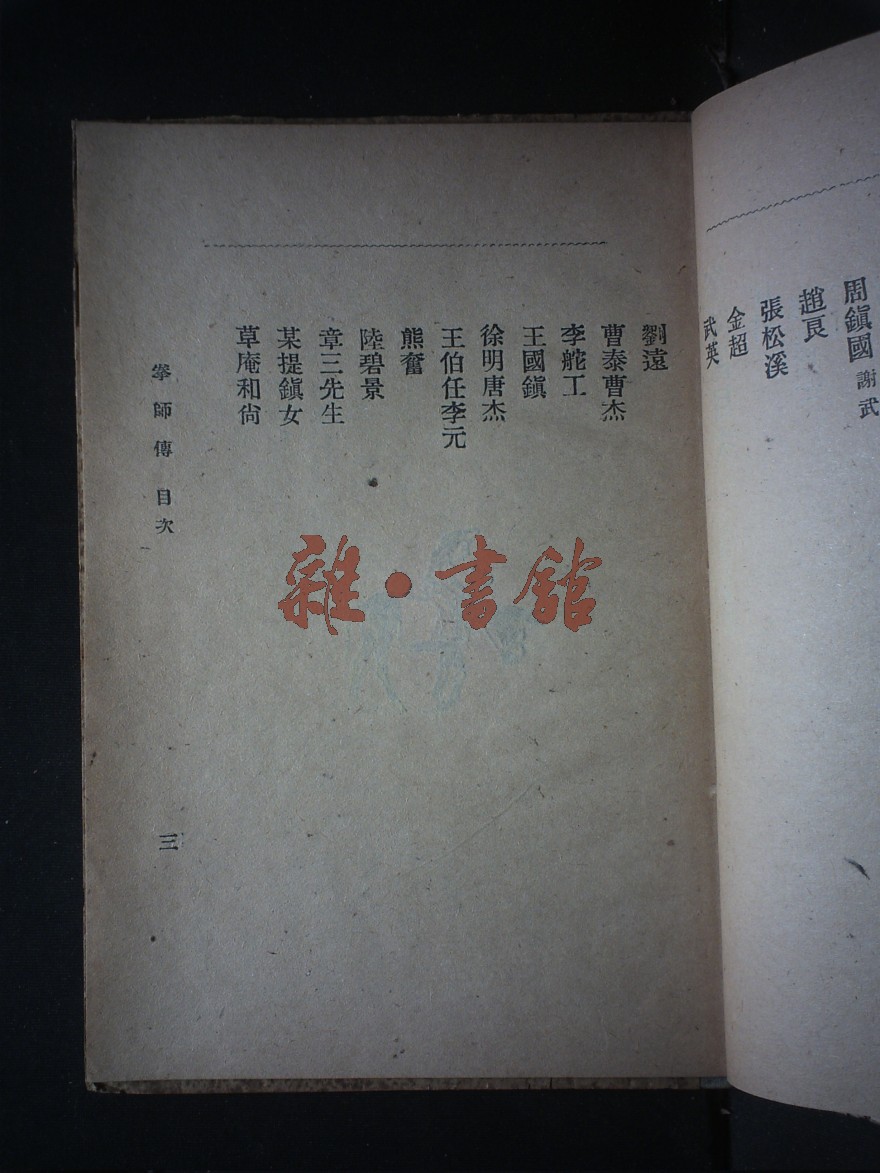 周鎭國 謝武
趙良
張松溪
金超
武英
劉遠
曹泰曹杰
李舵工
王國鎭
徐明唐杰
王伯任李元
熊奮
陸碧景
章三先生
某提鎭女
草庵和尙
拳師傳 目次
三
雜·書館